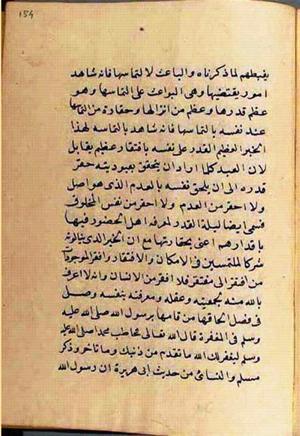 ١٥٤
يغبطهم لما ذكرناه والباعث لالتماسها فانه شاهد
امور يقتضيها وهى البواعث على التماسها وهو
عظم قدرها وعظم من انزلها وحقارة من التمسها
عند نفسه بالتماسها فانه شاهد بالتماسه لهذا
الخير العظيم القدر على نفسه بافتقار عظيم يقابل
لان العبد كلما اراد ان يتحقق بعبوديته حقر
قدره الى ان يلحق نفسه بالعدم الذى هو اصل
ولا احقر من العدم ولا احقر من نفس المخلوق
فسمى ايضا ليلة القدر لمعرفة اهل الحضور فيها
باقدارهم اعنى بحقارتها مع ان الخير الذى ينالونه
شركا الملتمسين فى الامكان والافتقار وافقر الموجودات
من افتقر الى مفتقر فلا افقر من الانسان وانه لا اعرف
بالله منه لجمعيته وعقله ومعرفته بنفسه وصل
فى فضل الحاقها من قامها برسول الله صلى الله عليه
وسلم فى المغفرة قال الله تعالى يخاطب محمدا صلى الله عليه
وسلم ليغفر لك الله ما تقدم من ذنبك وما تاخر وذكر
مسلم والنسائى من حديث ابى هريرة ان رسول الله